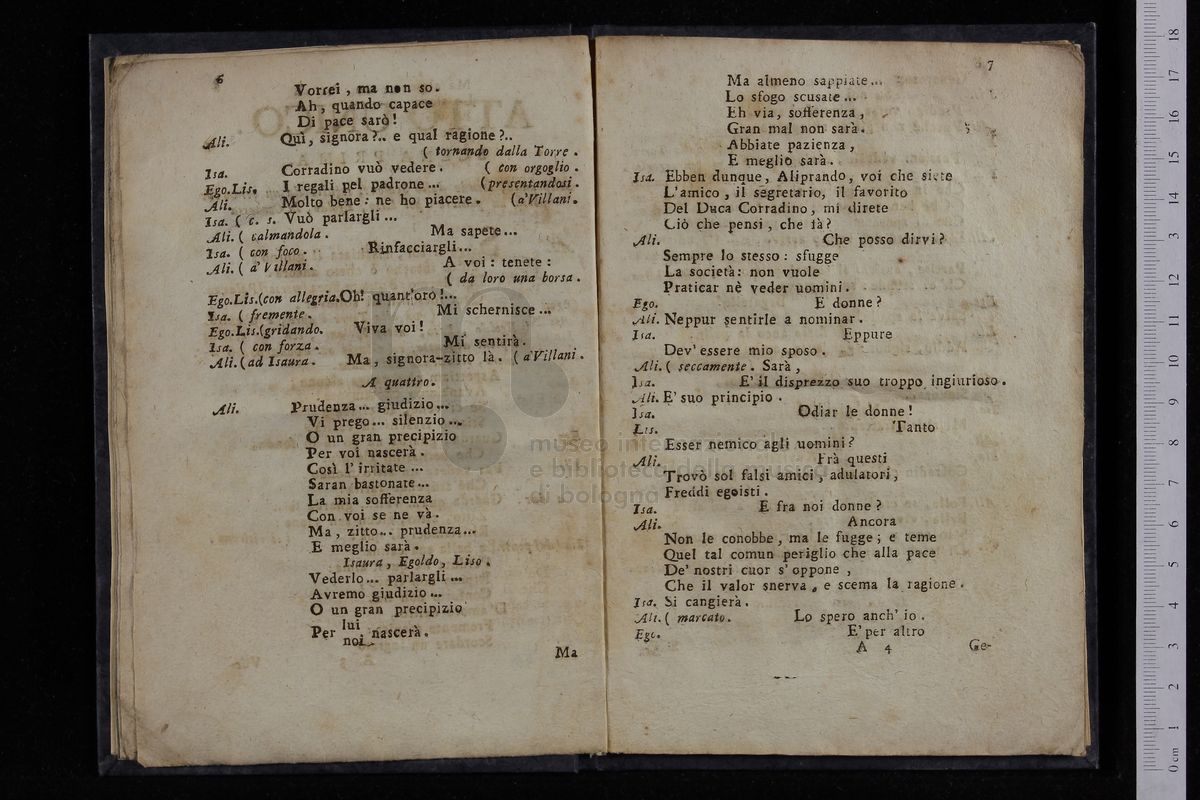 6
Vorrei, ma non so.
Ah, quando capace
Di pace sarò!
Ali. Quì, signora?.. e qual ragione?..
( tornando dalla Torre.
Isa. Corradino vuò vedere. ( con orgoglio.
Ego.Lis. I regali pel padrone... (presentandosi.
Ali. Molto bene: ne ho piacere. (a'Villani.
Isa. ( c. s. Vuò parlargli...
Ali. ( calmandola. Ma sapete...
Isa. ( con foco. Rinfacciargli...
Ali. ( a' Villani. A voi: tenete:
( da loro una borsa.
Ego.Lis.(con allegria.Oh! quant'oro!...
Isa. ( fremente. Mi schernisce...
Ego.Lis.(gridando. Viva voi!
Isa. ( con forza. Mi sentirà.
Ali.(ad Isaura. Ma, signora-zitto là. (a'Villani.
A quattro.
Ali. Prudenza... giudizio...
Vi prego... silenzio...
O un gran precipizio
Per voi nascerà.
Così l'irritate...
Saran bastonate...
La mia sofferenza
Con voi se ne và.
Ma, zitto... prudenza...
E meglio sarà.
Isaura, Egoldo, Liso.
Vederlo... parlargli...
Avremo giudizio...
O un gran precipizio
Per lui nascerà.
noi
Ma
7
Ma almeno sappiate...
Lo sfogo scusate...
Eh via, sofferenza,
Gran mal non sarà.
Abbiate pazienza,
E meglio sarà.
Isa. Ebben dunque, Aliprando, voi che siete
L'amico, il segretario, il favorito
Del Duca Corradino, mi direte
Ciò che pensi, che fà?
Ali. Che posso dirvi?
Sempre lo stesso: sfugge
La società: non vuole
Praticar nè veder uomini.
Ego. E donne?
Ali. Neppur sentirle a nominar.
Isa. Eppure
Dev'essere mio sposo.
Ali. ( seccamente. Sarà,
Isa. E' il disprezzo suo troppo ingiurioso.
Ali. E' suo principio.
Isa. Odiar le donne!
Lis. Tanto
Esser nemico agli uomini?
Ali. Frà questi
Trovò sol falsi amici, adulatori,
Freddi egoisti.
Isa. E fra noi donne?
Ali. Ancora
Non le conobbe, ma le fugge; e teme
Quel tal comun periglio che alla pace
De' nostri cuor s'oppone,
Che il valor snerva, e scema la ragione.
Isa. Si cangierà.
Ali. ( marcato. Lo spero anch' io.
Ego. E' per altro
A 4 Ge-
museo inte
e biblioteca della musica
di bologna
0 cm 1 2 3 4 5 6 7 8 9 10 11 12 13 14 15 16 17 18